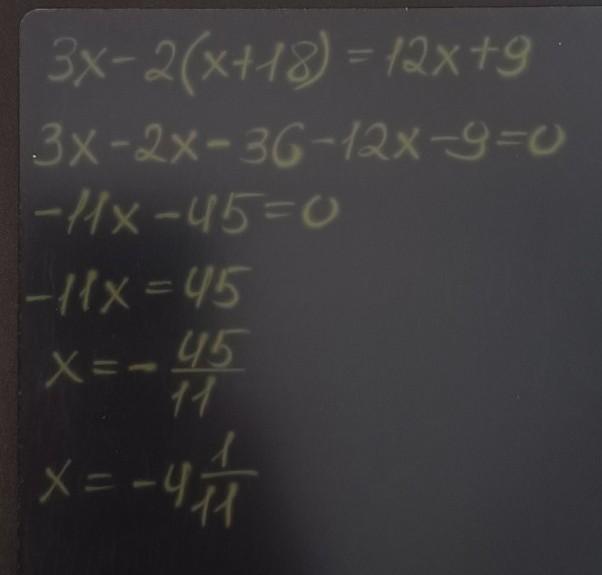 3x-2(x+18)=12x+9
3x-2x-36-12x-9=0
-11x-45=0
-11x=45
x=-45/11
x=-4 1/11